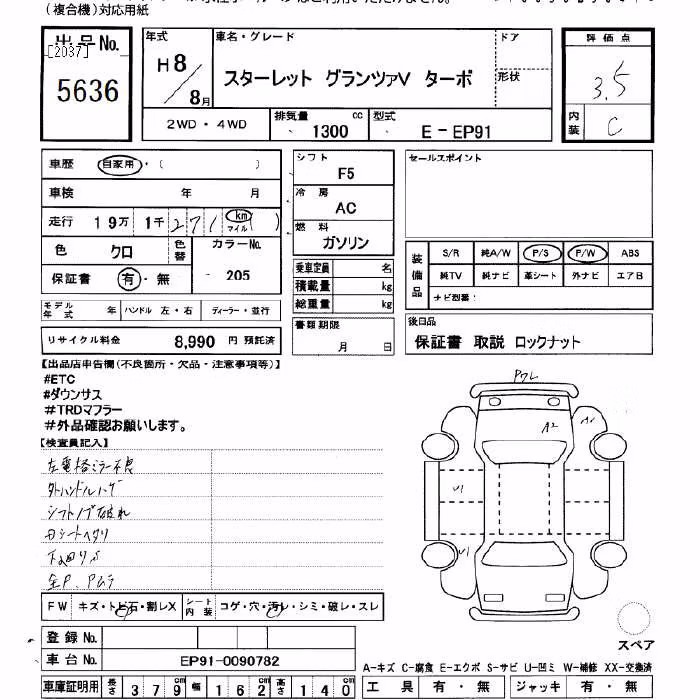 (複合機)対応用紙
出品No.
[2037]
5636
年式
H8/8月
車名・グレード
スターレット グランツァV ターボ
ドア
形状
評価点
3.5
内装
C
2WD・4WD
排気量
1300 cc
型式
E-EP91
車歴 自家用・( )
車検 年 月
走行 19万 1千 271 km マイル
色 クロ
色替
カラーNo.
205
保証書 有・無
シフト
F5
冷房
AC
燃料
ガソリン
セールスポイント
乗車定員 名
積載量 kg
総重量 kg
装備品
S/R 純A/W P/S P/W ABS
純TV 純ナビ 革シート 外ナビ エアB
ナビ型番:
モデル年式 年 ハンドル 左・右 ディーラー・並行
リサイクル料金 8,990 円 預託済
書類期限
月 日
後日品
保証書 取説 ロックナット
【出品店申告欄(不良箇所・欠品・注意事項等)】
#ETC
#ダウンサス
#TRDマフラー
#外品確認お願いします。
【検査員記入】
左電格ミラー不良
外ハンドルハゲ
シフトノブ破れ
Dシートヘタリ
下廻りS
全P、Pムラ
Pワレ
A2
A1
U1
U1
FW キズ・トビ石・割レX
シート内装 コゲ・穴・汚レ・シミ・破レ・スレ
登録 No.
車台 No. EP91-0090782
スペア
A-キズ C-腐食 E-エクボ S-サビ U-凹ミ W-補修 XX-交換済
車庫証明用 長さ 379cm 幅 162cm 高さ 140
工具 有・無 ジャッキ 有・無